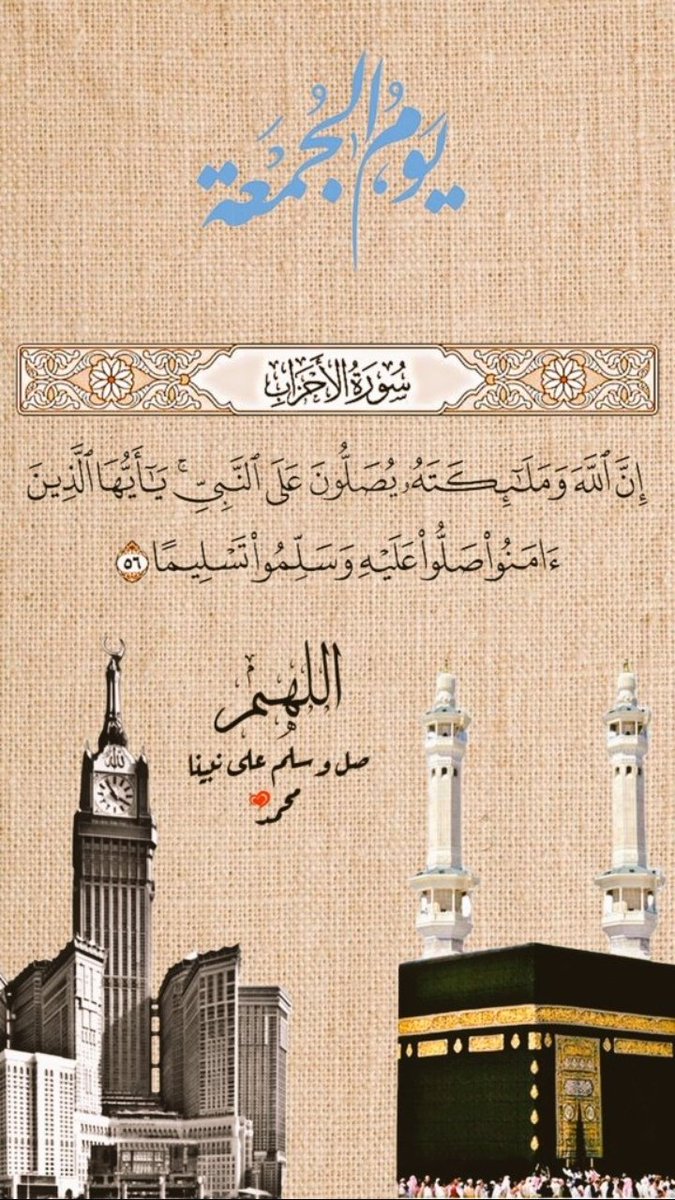 يَومُ الجُمعَة
سُورَةُ الأَحْزَابِ
إِنَّ ٱللَّهَ وَمَلَـٰٓئِكَتَهُۥ يُصَلُّونَ عَلَى ٱلنَّبِىِّ ۚ يَـٰٓأَيُّهَا ٱلَّذِينَ
ءَامَنُوا۟ صَلُّوا۟ عَلَيْهِ وَسَلِّمُوا۟ تَسْلِيمًا ٥٦
اللهم
صل وسلم على نبينا
محمد
الله